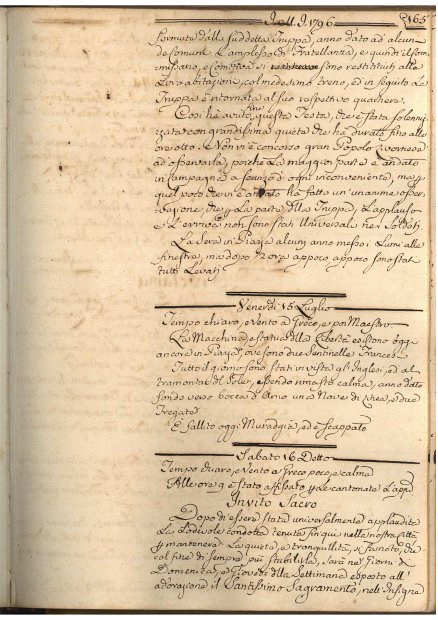 Dell' A. 1796. 165
formata dalla suddetta Truppa, anno dato ad alcuni
de comuni L'amplesso di Fratellanza, e quindi il Com-
missario, e Comitiva si sono restituiti alle
Loro abitazione, col medesimo treno, ed in seguito La
Truppa è ritornata al suo respettivo quartiere.
Così hà avuto fine questa Festa, che è stata solenniz-
zata con grandissima quiete che hà durato fino alle
ore otto. Non vi è concorso gran Popolo Livornese
ad osservarla, poiche La maggior parte è andata
in Campagna a scanso d'ogni inconveniente, ma
quel poco che vi è restato hà fatto un'unanime osser-
vazione, che p La parte della Truppa, L'applauso
e L'evviva non sono stati Universali nei Soldati
La Sera in Piazza alcuni anno messo i Lumi alle
finestre, ma dopo ora appoco appoco sono stati
tutti Levati
Venerdi 15 Luglio
Tempo chiaro, e Vento a Greco, e poi Maestro
La Macchina, e statua della Libertà esistono oggi
ancora in Piazza, ove sono due Sentinelle Francesi
Tutto il giorno sono stati in vista gli Inglesi, ed al
tramontar del Sole, essendo rimasta calma, anno dato
fondo verso bocca d'Arno una Nave di Linea, e due
Fregate
E fallito oggi ed è scappato
Sabato 16 Detto
Tempo chiaro, e Vento a Greco poco, e calma
Alle ore 9 è stato affissato p Le cantonate L'app.
Invito Sacro
Dopo di essere stata universalmente applaudita
La Lodevole condotta tenuta fin qui nella nostra Città
p mantenere La quiete, e tranquillità, si fà noto, che
col fine di sempre più stabilirla, sarà nei Giorni di
Domenica, e Giovedi della Settimana esposto all'
adorazione il Santissimo Sagramento, nell'Insigne